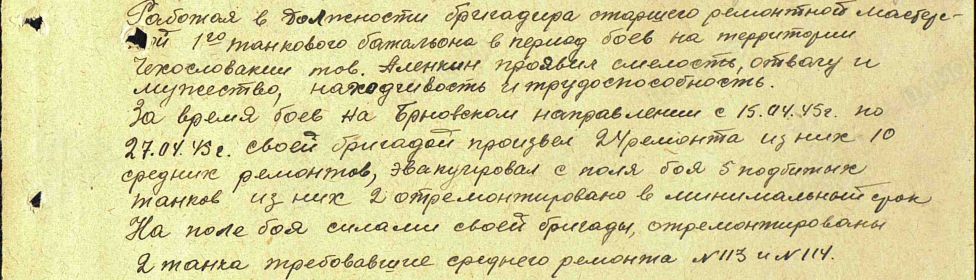 Работая в должности бригадира старшего ремонтной мастерс-
кой 1го танкового батальона в период боев на территории
Чехословакии тов. Аленкин проявил смелость, отвагу и
мужество, находчивость и трудоспособность.
За время боев на Брновском направлении с 15.04.45г. по
27.04.45г. своей бригадой произвел 24 ремонта из них 10
средних ремонтов, эвакуировал с поля боя 5 подбитых
танков из них 2 отремонтировано в минимальный срок
На поле боя силами своей бригады, отремонтированы
2 танка требовавшие среднего ремонта N113 и N114.